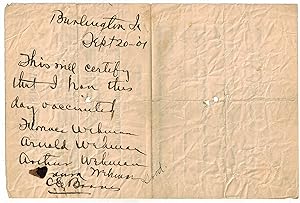 Burlington Ia
Sept 20-01
This will certify
that I have this
day vaccinated
Florence Wehman
Arnold Wehman
Arthur Wehman
Laura Wehman